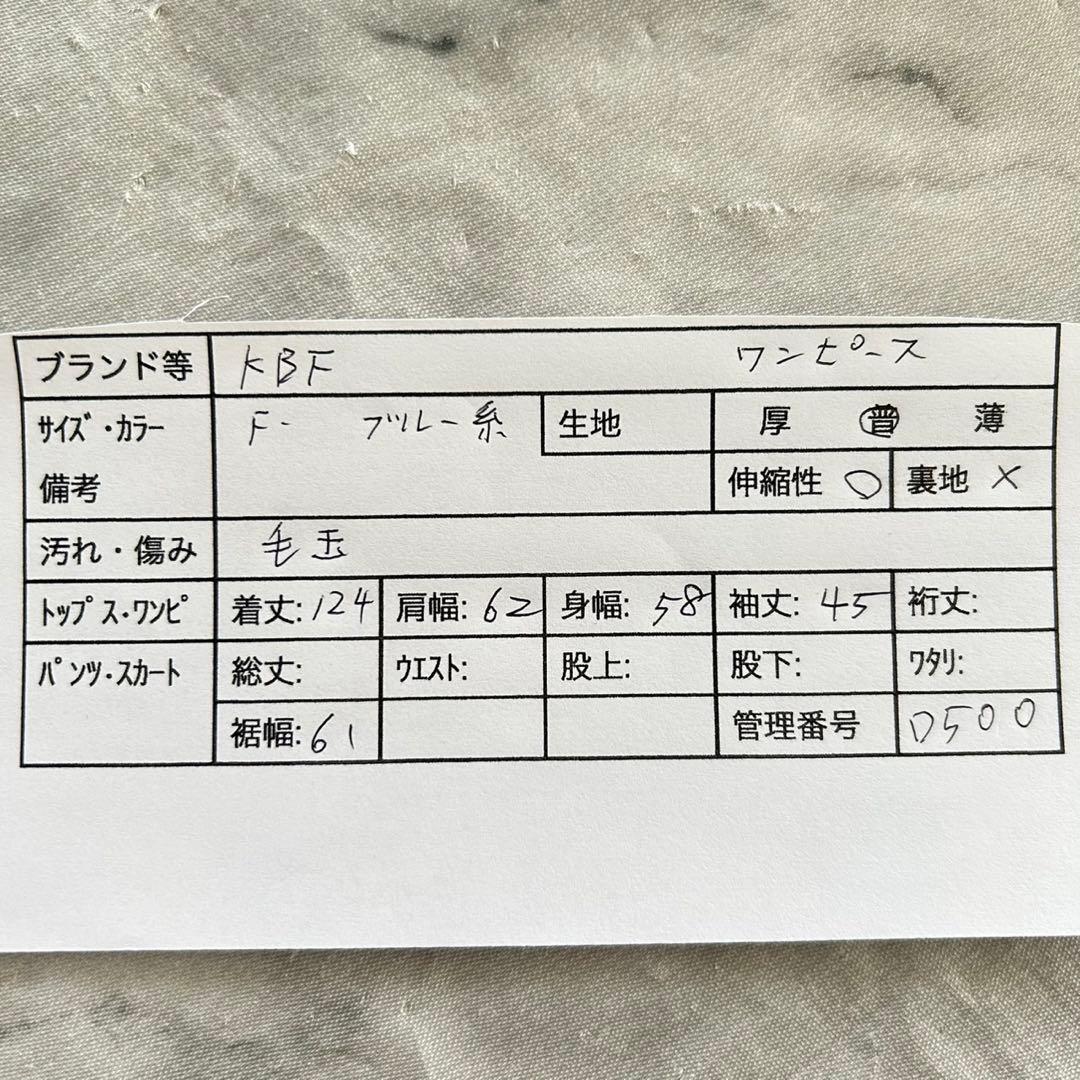 ブランド等 KBF ワンピース
サイズ・カラー F- ブルー系 生地 厚 普 薄
備考 伸縮性 ○ 裏地 ×
汚れ・傷み 毛玉
トップス・ワンピ 着丈:124 肩幅:62 身幅:58 袖丈:45 裄丈:
パンツ・スカート 総丈: ウエスト: 股上: 股下: ワタリ:
裾幅:61 管理番号 D500